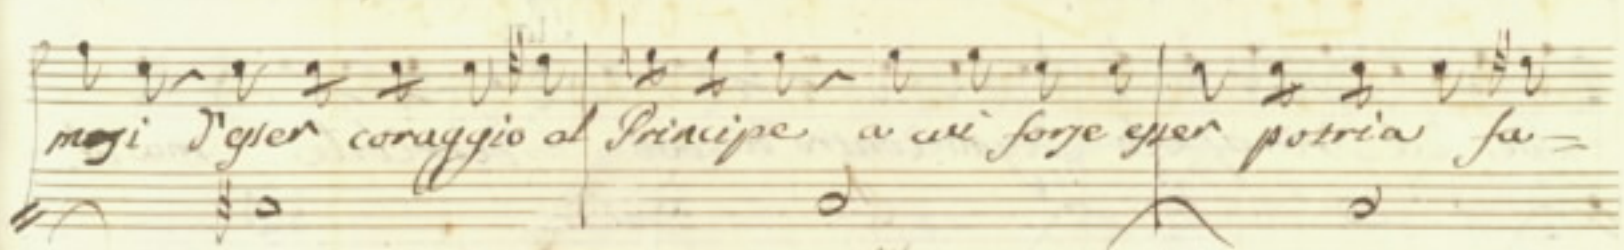 mogi d'esser coraggio al Principe a cui forse esser potria fa=